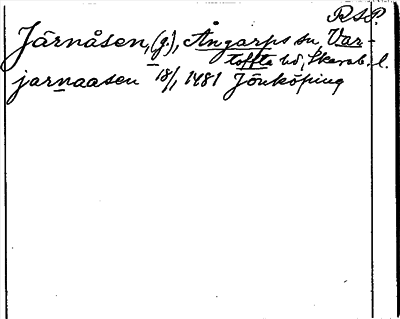 RSP.
Järnåsen, (g.), Ångarps sn, Var-
tofta hd, Skarab. l.
jarnaasen 18/1 1481 Jönköping